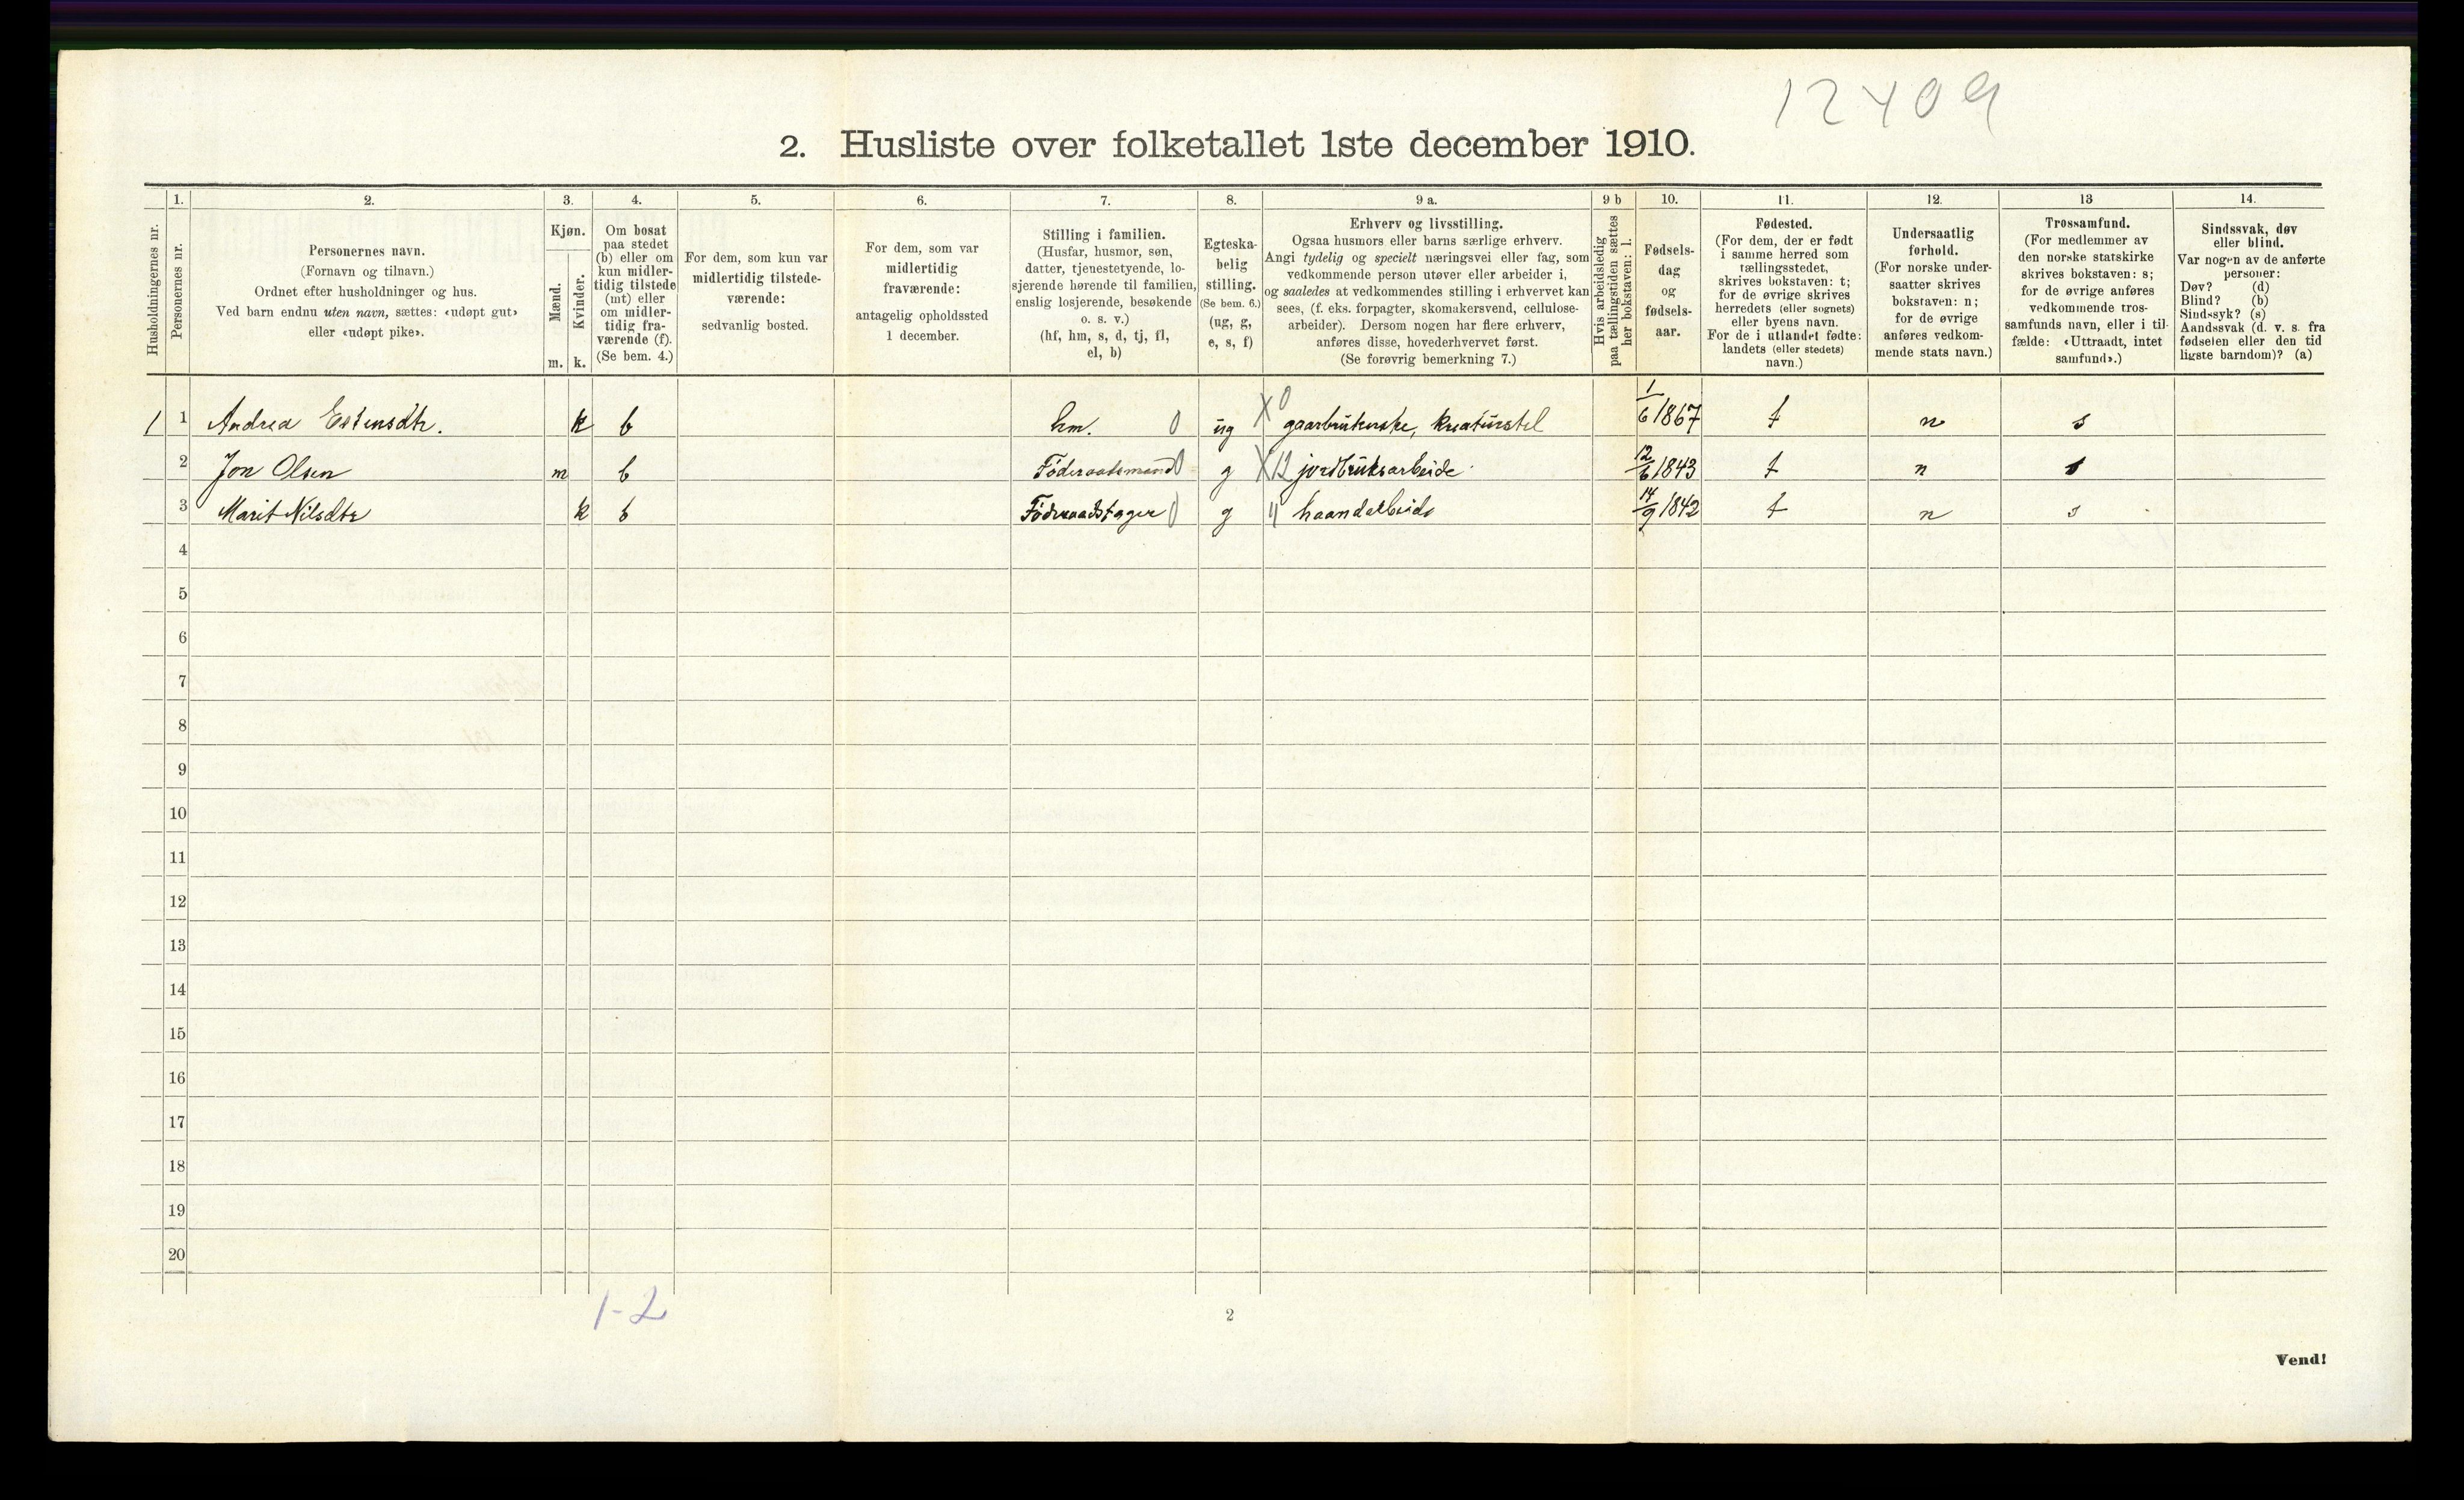 12409
2. Husliste over folketallet 1ste december 1910.
Husholdningernes nr.
1.
Personernes nr.
2.
Personernes navn.
(Fornavn og tilnavn.)
Ordnet efter husholdninger og hus.
Ved barn endnu uten navn, sættes: «udøpt gut»
eller «udøpt pike».
3.
Kjøn.
Mænd.
Kvinder.
m. k.
4.
Om bosat
paa stedet
(b) eller om
kun midler-
tidig tilstede
(mt) eller
om midler-
tidig fra-
værende (f).
(Se bem. 4.)
5.
For dem, som kun var
midlertidig tilstede-
værende:
sedvanlig bosted.
6.
For dem, som var
midlertidig
fraværende:
antagelig opholdssted
1 december.
7.
Stilling i familien.
(Husfar, husmor, søn,
datter, tjenestetyende, lo-
sjerende hørende til familien,
enslig losjerende, besøkende
o. s. v.)
(hf, hm, s, d, tj, fl,
el, b)
8.
Egteska-
belig
stilling.
(Se bem. 6.)
(ug, g,
e, s, f)
9 a.
Erhverv og livsstilling.
Ogsaa husmors eller barns særlige erhverv.
Angi tydelig og specielt næringsvei eller fag, som
vedkommende person utøver eller arbeider i,
og saaledes at vedkommendes stilling i erhvervet kan
sees, (f. eks. forpagter, skomakersvend, cellulose-
arbeider). Dersom nogen har flere erhverv,
anføres disse, hovederhvervet først.
(Se forøvrig bemerkning 7.)
9 b
Hvis arbeidsledig
paa tællingstiden sættes
her bokstaven: l.
10.
Fødsels-
dag
og
fødsels-
aar.
11.
Fødested.
(For dem, der er født
i samme herred som
tællingsstedet,
skrives bokstaven: t;
for de øvrige skrives
herredets (eller sognets)
eller byens navn.
For de i utlandet fødte:
landets (eller stedets)
navn.)
12.
Undersaatlig
forhold.
(For norske under-
saatter skrives
bokstaven: n;
for de øvrige
anføres vedkom-
mende stats navn.)
13
Trossamfund.
(For medlemmer av
den norske statskirke
skrives bokstaven: s;
for de øvrige anføres
vedkommende tros-
samfunds navn, eller i til-
fælde: «Uttraadt, intet
samfund».)
14.
Sindssvak, døv
eller blind.
Var nogen av de anførte
personer:
Døv? (d)
Blind? (b)
Sindssyk? (s)
Aandssvak (d. v. s. fra
fødselen eller den tid
ligste barndom)? (a)
1 1 Andrea Estensdtr. k b hm. 0 ug X 0 gaarbrukerske, kreaturstel 1/6 1867 t n s
2 Jon Olsen m b Föderaadsmand 0 g X 12 jordbruksarbeide 12/6 1843 t n s
3 Marit Nilsdtr k b Föderaadstager 0 g " haandarbeide 14/9 1842 t n s
4
5
6
7
8
9
10
11
12
13
14
15
16
17
18
19
20
1-2
2
Vend!